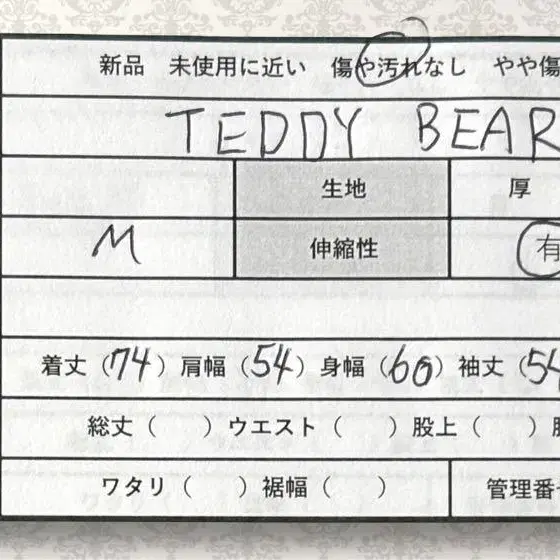 新品 未使用に近い 傷や汚れなし やや傷
TEDDY BEAR
生地 厚
M 伸縮性 有
着丂（74）肩幅（54）身幅（60）袖丈（54
総丈（ ）ウエスト（ ）股上（ ）
ワタリ（ ）裾幅（ ） 管理番